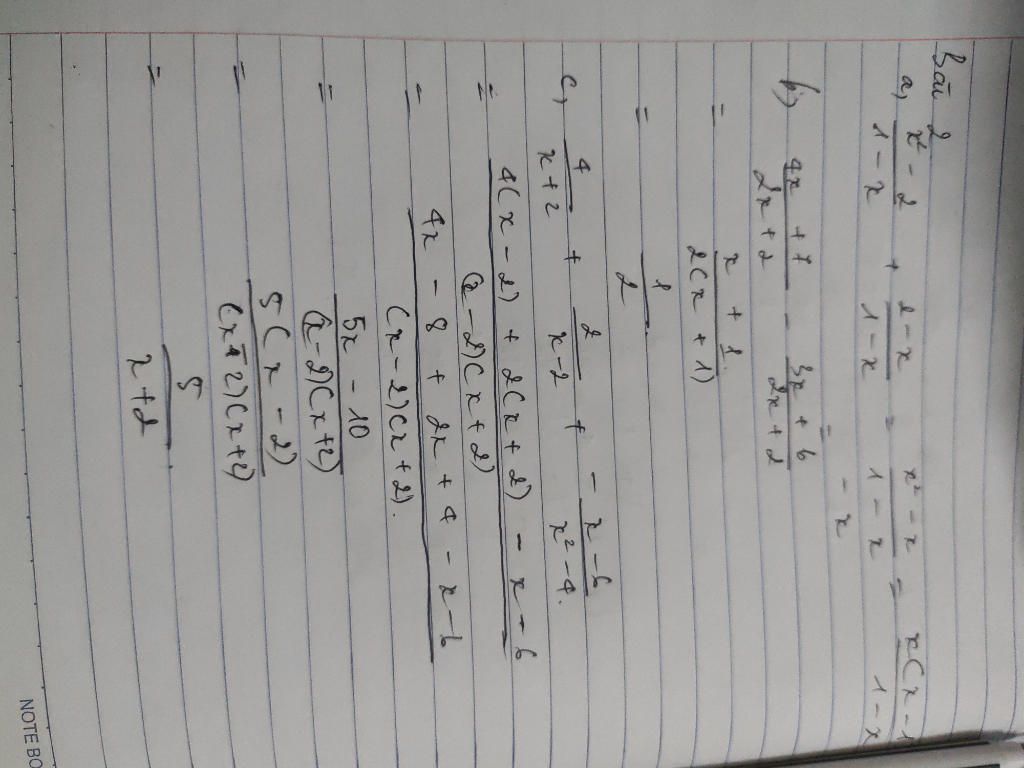 Bài 2
a, \frac{x² - 2}{1 - x} + \frac{2 - x}{1 - x} = \frac{x² - x}{1 - x} = \frac{x(x - 1}{1 - x}
= - x
b) \frac{4x + 7}{2x + 2} - \frac{3x + 6}{2x + 2}
= \frac{x + 1}{2(x + 1)}
= \frac{1}{2}
c, \frac{4}{x + 2} + \frac{2}{x - 2} + - \frac{x - 6}{x² - 4}.
= \frac{4(x - 2) + 2(x + 2) - x - 6}{(x - 2)(x + 2)}
= \frac{4x - 8 + 2x + 4 - x - 6}{(x - 2)(x + 2)}.
= \frac{5x - 10}{(x - 2)(x + 2)}
= \frac{5(x - 2)}{(x - 2)(x + 2)}
= \frac{5}{x + 2}
NOTEBO